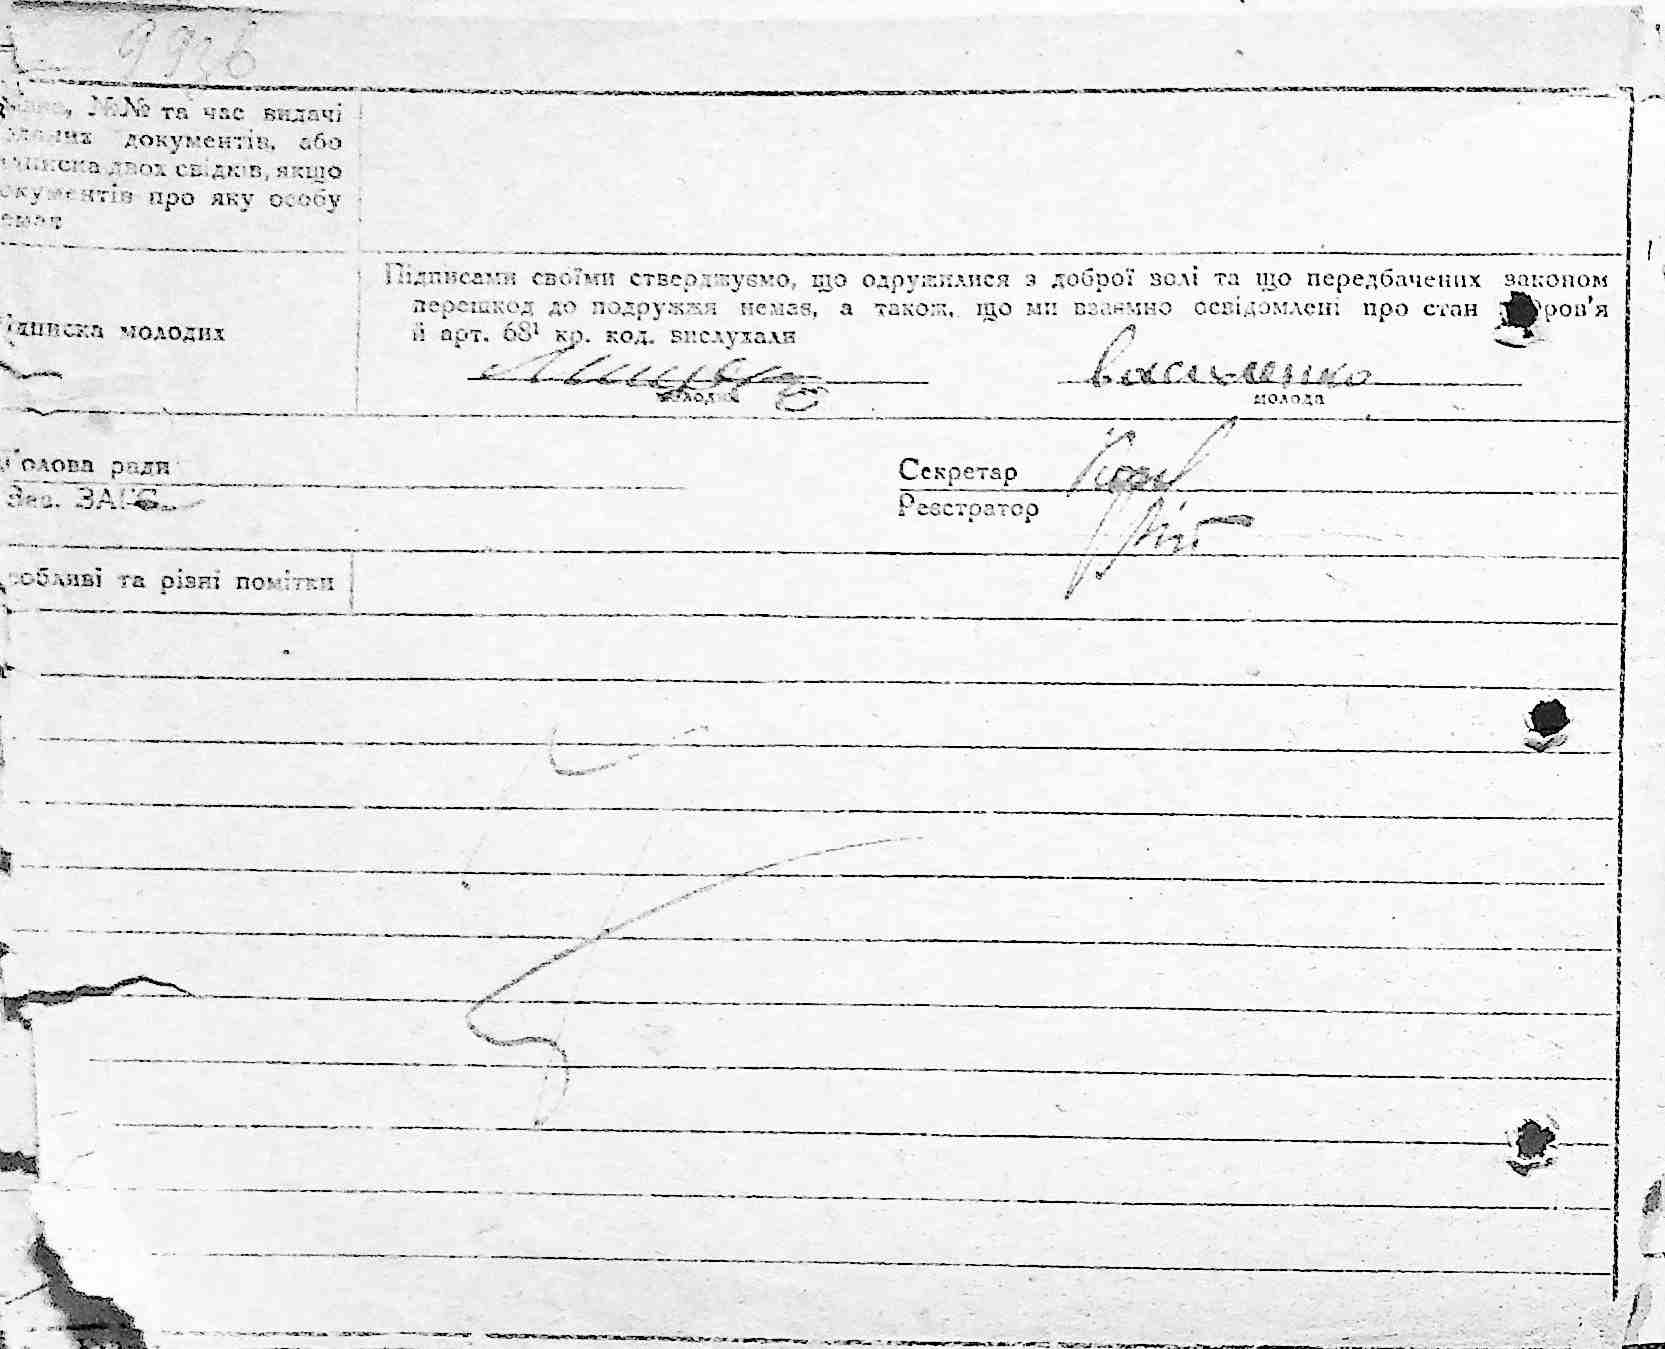 №№ та час видачі
документів, або
двох свідків, якщо
документів про яку особу
Підписами своїми стверджуємо, що одружилися з доброї волі та що передбачених законом
перешкод до подружжя немає, а також, що ми взаємно освідомлені про стан здоров'я
й арт. 68¹ кр. код. вислухали
підписка молодих
Василенко
молодий
молода
Голова ради
Секретар
Зав. ЗАГС
Реєстратор
особливі та різні помітки